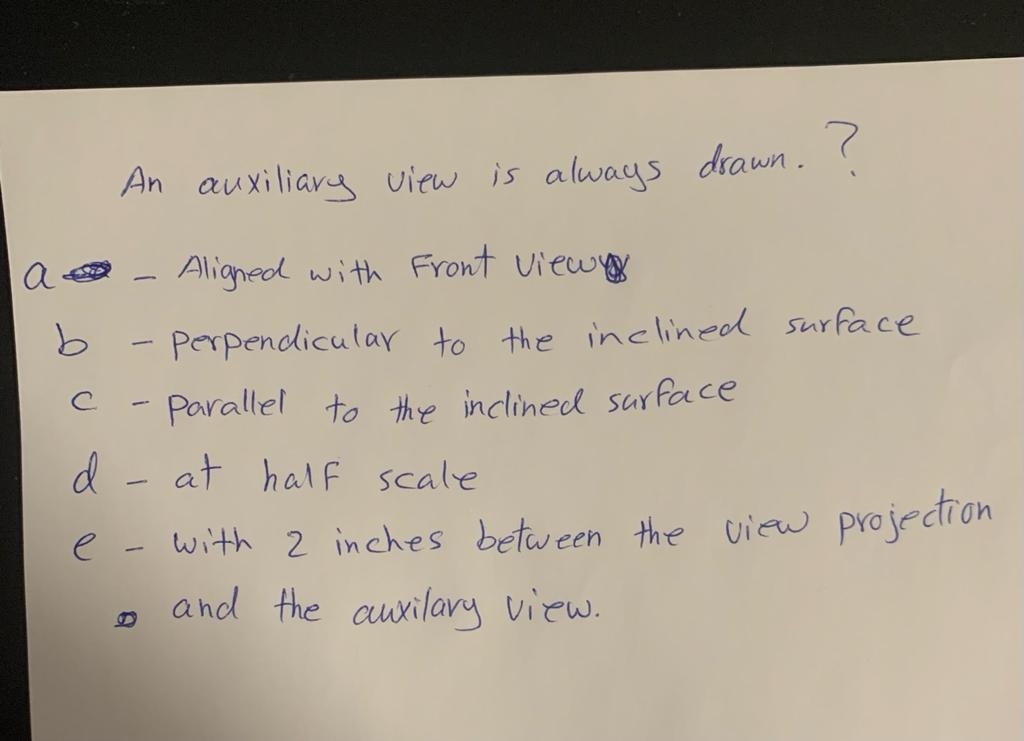 An auxiliary view is always drawn. ?
a - Aligned with Front view
b - perpendicular to the inclined surface
c - parallel to the inclined surface
d - at half scale
e - with 2 inches between the view projection
and the auxilary view.